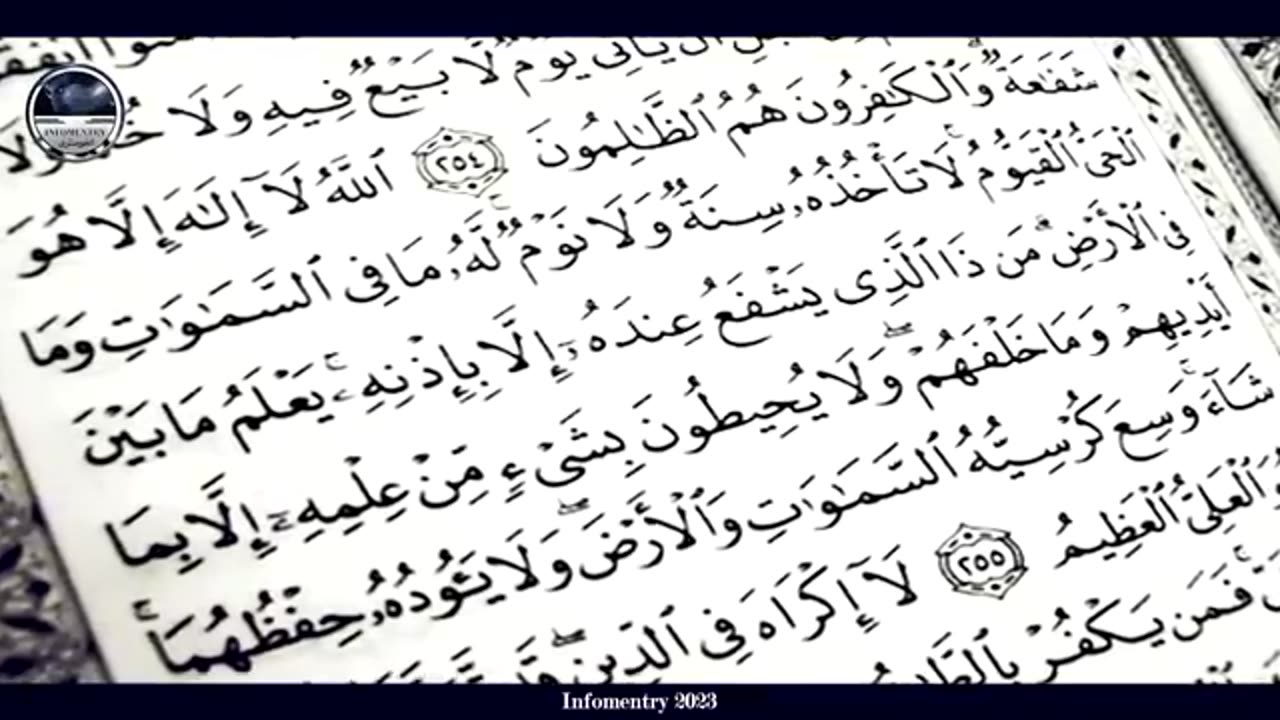 يَأْتِىَ يَوْمٌ لَّا بَيْعٌ فِيهِ وَلَا
شَفَـٰعَةٌ ۗ وَٱلْكَـٰفِرُونَ هُمُ ٱلظَّـٰلِمُونَ ٢٥٤ ٱللَّهُ لَآ إِلَـٰهَ إِلَّا هُوَ
ٱلْحَىُّ ٱلْقَيُّومُ ۚ لَا تَأْخُذُهُۥ سِنَةٌ وَلَا نَوْمٌ ۚ لَّهُۥ مَا فِى ٱلسَّمَـٰوَٰتِ وَمَا
فِى ٱلْأَرْضِ ۗ مَن ذَا ٱلَّذِى يَشْفَعُ عِندَهُۥٓ إِلَّا بِإِذْنِهِۦ ۚ يَعْلَمُ مَا بَيْنَ
أَيْدِيهِمْ وَمَا خَلْفَهُمْ ۖ وَلَا يُحِيطُونَ بِشَىْءٍ مِّنْ عِلْمِهِۦٓ إِلَّا بِمَا
شَآءَ ۚ وَسِعَ كُرْسِيُّهُ ٱلسَّمَـٰوَٰتِ وَٱلْأَرْضَ ۖ وَلَا يَـُٔودُهُۥ حِفْظُهُمَا ۚ
ٱلْعَلِىُّ ٱلْعَظِيمُ ٢٥٥ لَآ إِكْرَاهَ فِى ٱلدِّينِ ۖ
فَمَن يَكْفُرْ
INFOMENTRY
Infomentry 2023